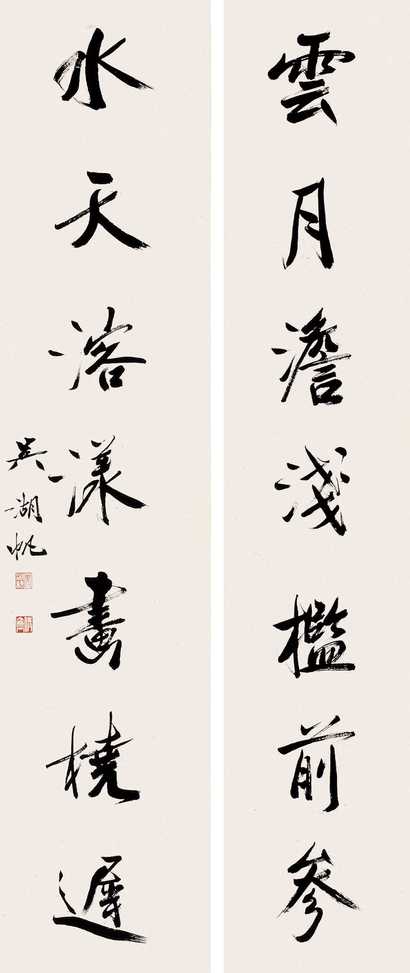 雲月澹淺檻前參
水天溶漾畫橈遲
吳湖帆